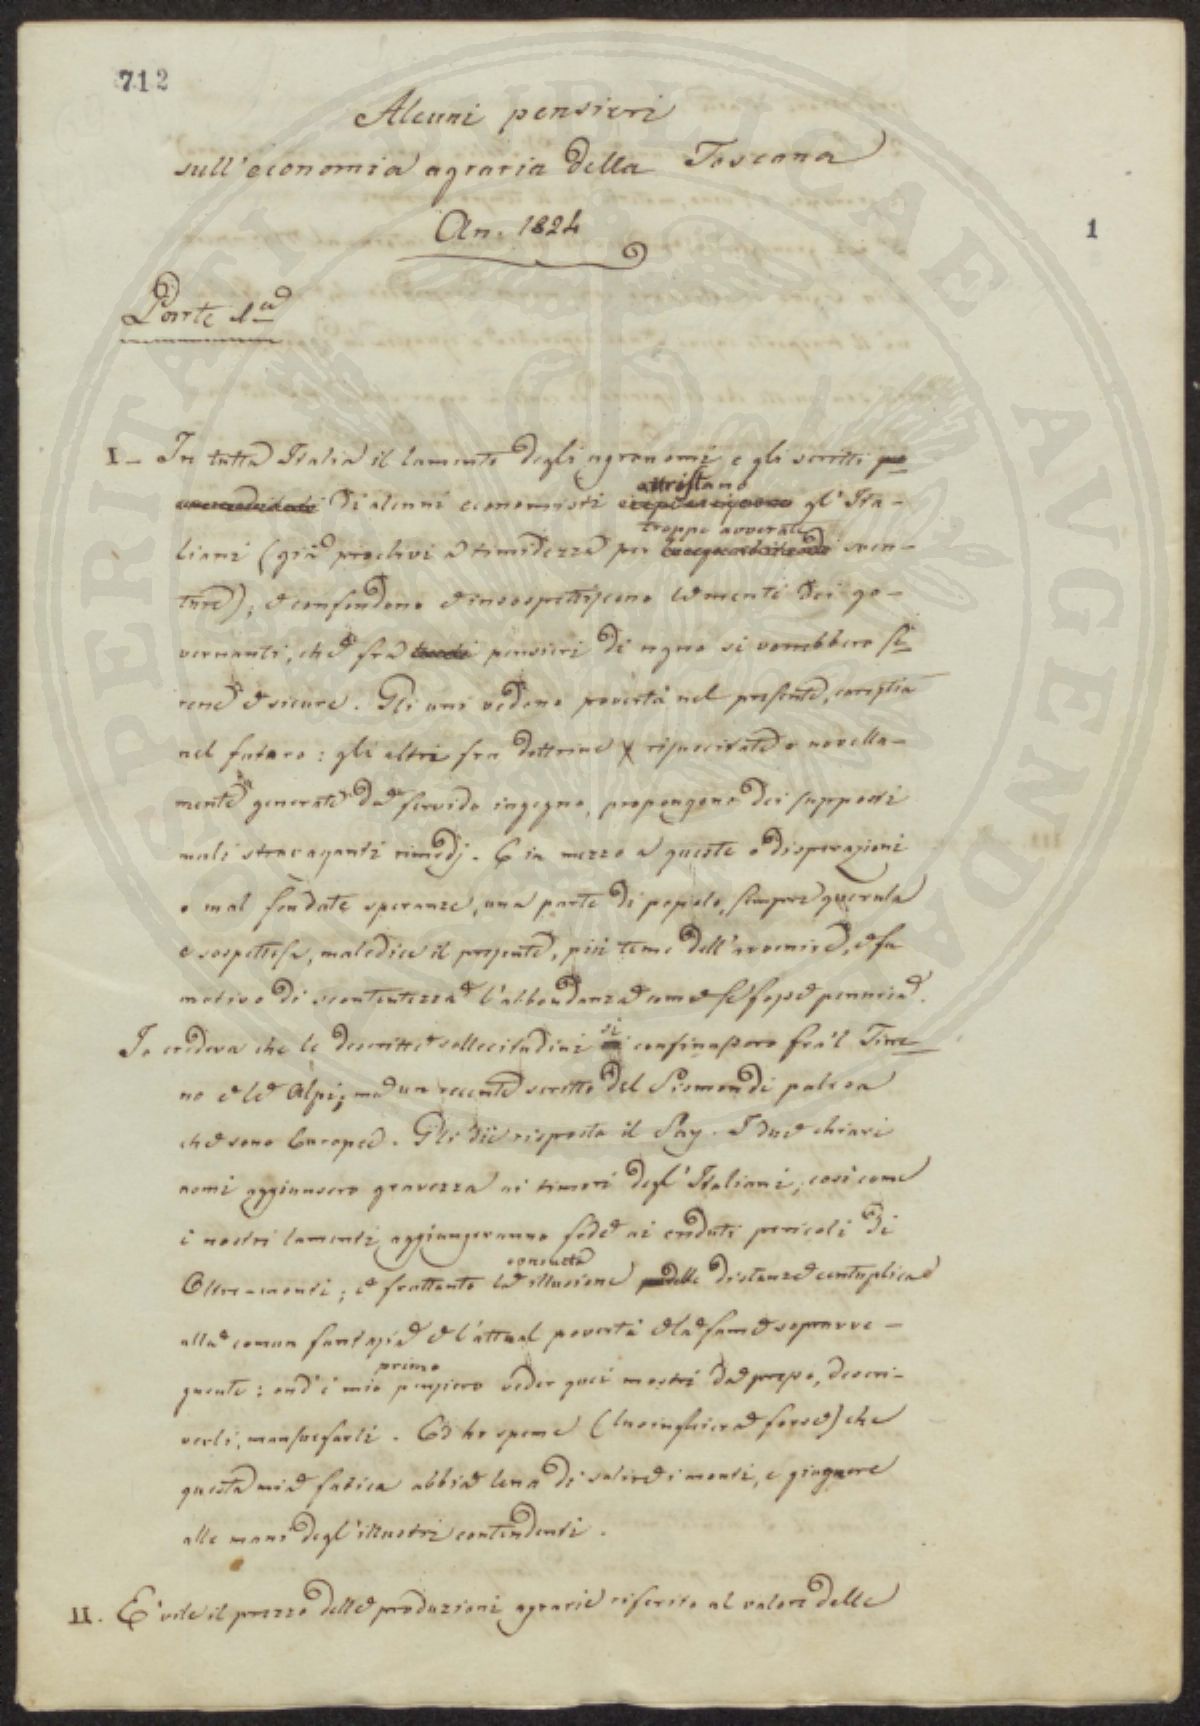 712
Alcuni pensieri
sull'economia agraria della Toscana
An. 1824
1
Parte 1.a
I – In tutta Italia il lamento degli agronomi e gli scritti
attristano
di alcuni economisti gl'Ita-
troppe avverate
liani (già proclivi a timidezza per sven-
ture), e confondono e insospettiscono le menti dei go-
vernanti, che fra pensieri di regno si vorrebbero se-
rene e sicure. Gli uni vedono povertà nel presente, carestia
nel futuro: gli altri fra dottrine risuscitate o novella-
mente generate da fervido ingegno, propongono dei supposti
mali stravaganti rimedj. E in mezzo a queste o disperazioni
o mal fondate speranze, una parte di popolo, sempre querula
e sospettosa, maledice il presente, più teme dell'avvenire, e fa
motivo di scontentezza l'abbondanza come se fosse penuria.
Io credeva che le descritte sollecitudini si confinassero fra'l Tirre-
no e le Alpi; ma un recente scritto del Sismondi palesa
che sono Europee. Gli diè risposta il Say. I due chiari
nomi aggiunsero gravezza ai timori degl'Italiani, così come
i nostri lamenti aggiungeranno fede ai creduti pericoli di
consueta
Oltre-monti; e frattanto la illusione delle distanze centuplica
alla comun fantasia e l'attual povertà e la fame sopravve-
primo
gnente: ond'è mio pensiero veder quei mostri da presso, descri-
verli, mansuefarli. Ed ho speme (lusinghiera forse) che
questa mia fatica abbia lena di salire i monti, e giugnere
alle mani degl'illustri contendenti.
II. E' vile il prezzo delle produzioni agrarie riferito al valore delle